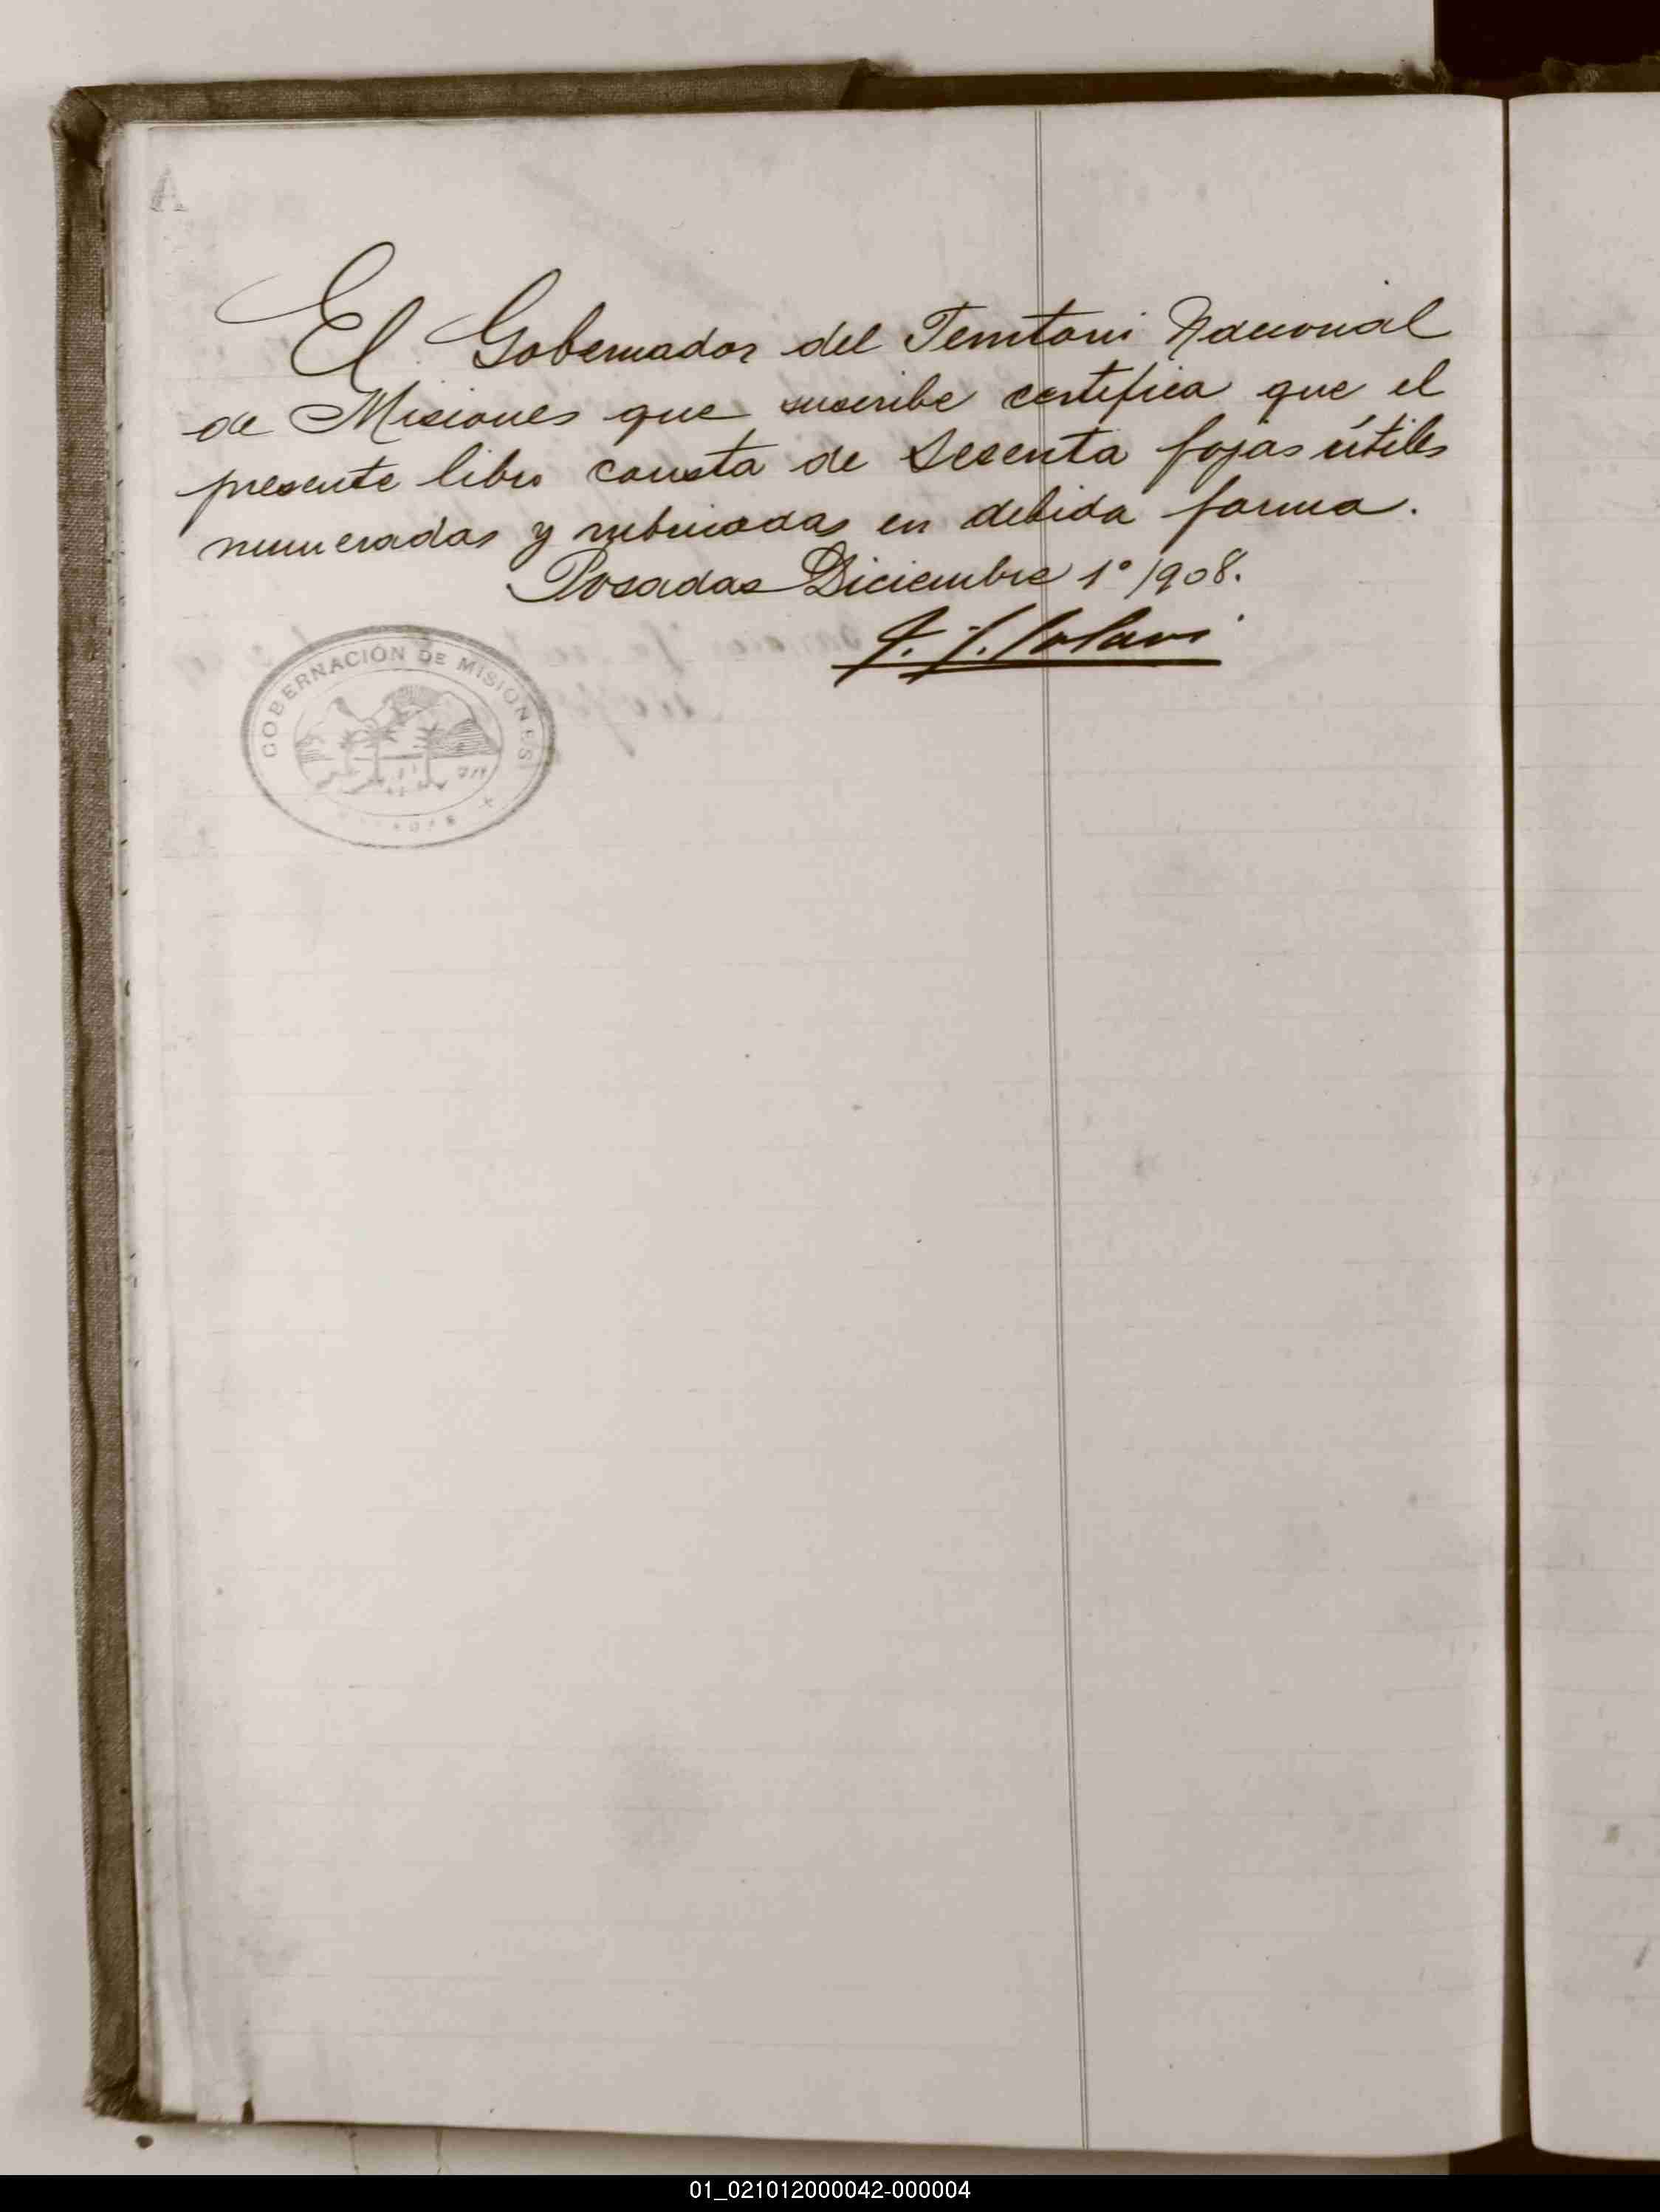 El Gobernador del Territorio Nacional
de Misiones que suscribe certifica que el
presente libro consta de Sesenta fojas útiles
numeradas y rubricadas en debida forma.
Posadas Diciembre 1º 1908.
J. J. Lanusse
GOBERNACIÓN DE MISIONES
01_021012000042-000004